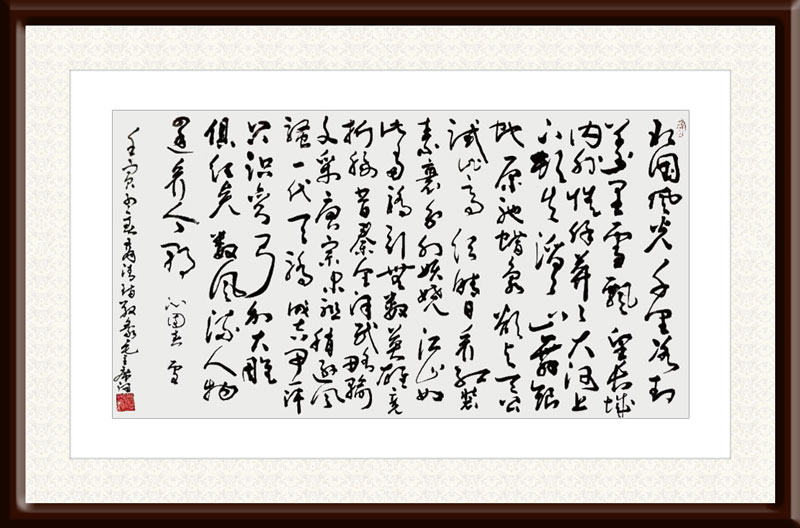 北国风光千里冰封
万里雪飘望长城
内外惟余莽莽大河上
下顿失滔滔山舞银
蛇原驰蜡象欲与天公
试比高须晴日看红装
素裹分外妖娆江山如
此多娇引无数英雄竞
折腰昔秦皇汉武略输
文采唐宗宋祖稍逊风
骚一代天骄成吉思汗
只识弯弓射大雕
俱往矣数风流人物
还看今朝 沁园春 雪
壬寅 毛主席词